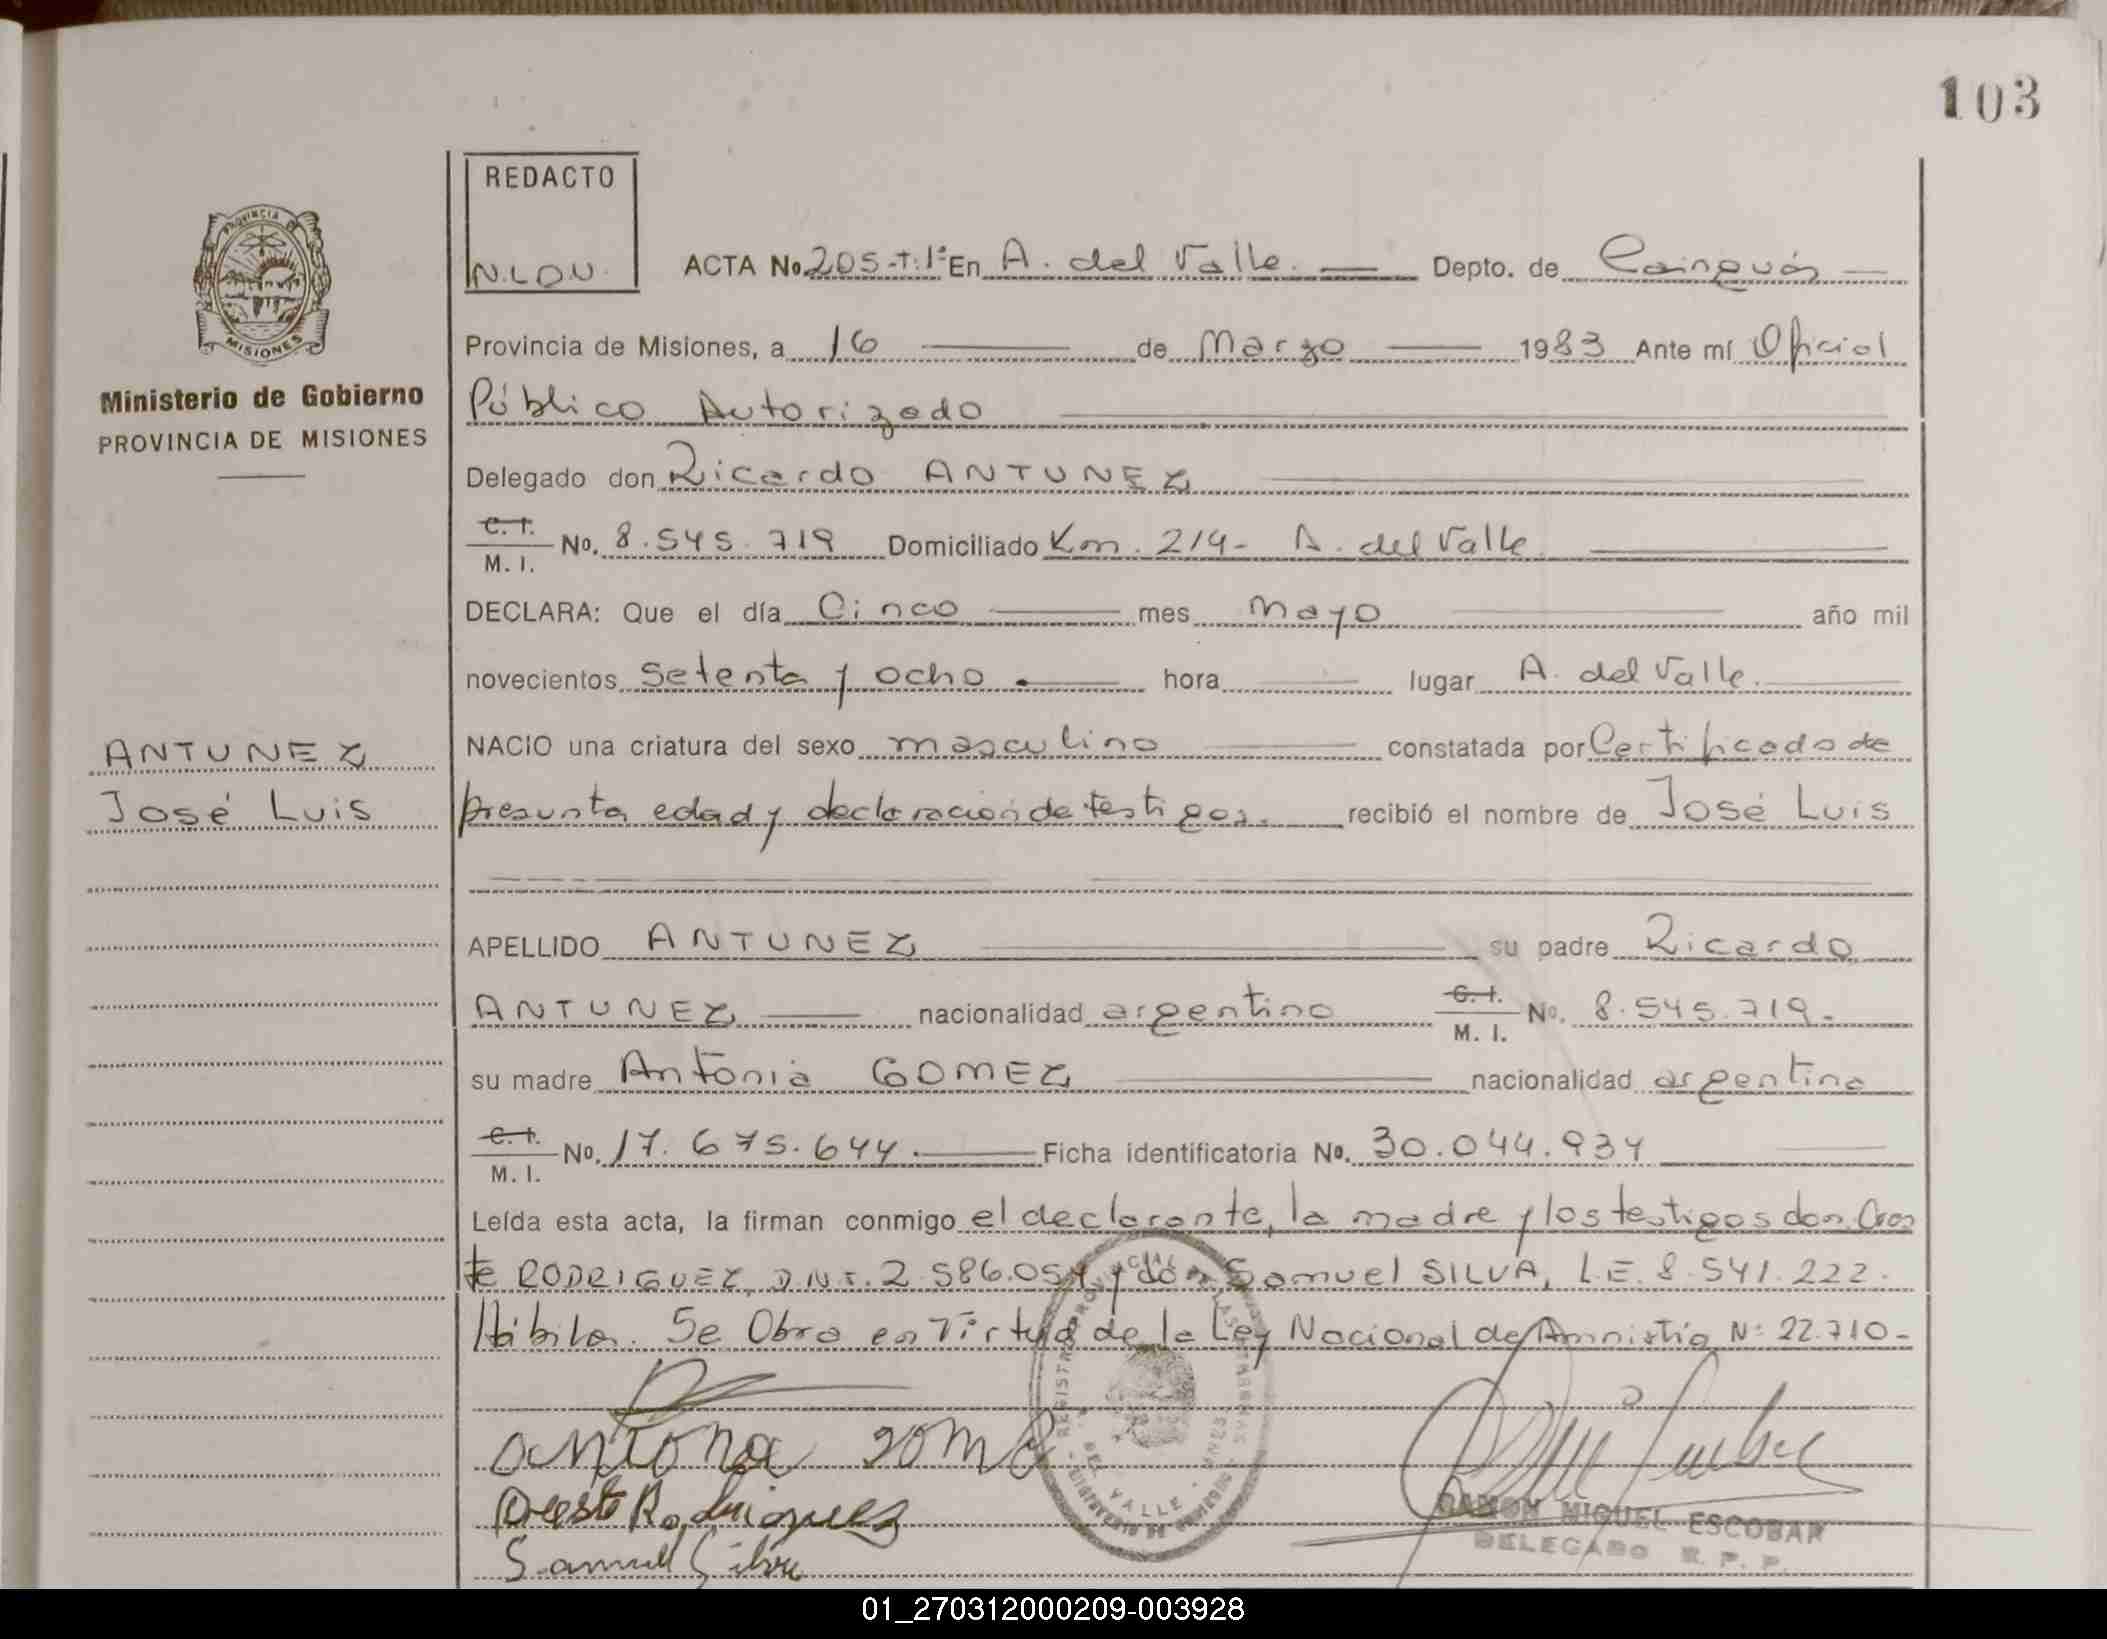 103
REDACTO
N.LDU.
ACTA No. 205-T.1º En A. del Valle. Depto. de Cainguás
PROVINCIA
MISIONES
Ministerio de Gobierno
PROVINCIA DE MISIONES
Provincia de Misiones, a 16 de Marzo 1983 Ante mí Oficial
Público Autorizado
Delegado don Ricardo ANTUNEZ
C. I.
M. I. No. 8.545.719 Domiciliado Km. 214- A. del Valle
DECLARA: Que el día Cinco mes Mayo año mil
novecientos setenta y ocho hora lugar A. del Valle.
NACIO una criatura del sexo masculino constatada por Certificado de
presunta edad y declaración de testigos. recibió el nombre de José Luis
ANTUNEZ
José Luis
APELLIDO ANTUNEZ su padre Ricardo
ANTUNEZ nacionalidad argentino C. I. M. I. No. 8.545.719.
su madre Antonia GOMEZ nacionalidad argentina
C. I.
M. I. No. 17.675.644. Ficha identificatoria No. 30.044.934
Leída esta acta, la firman conmigo el declarante, la madre y los testigos don Ores
te RODRIGUEZ, D.N.I. 2.586.054 y don Samuel SILVA, L.E. 8.541.222.
Hábiles. Se Obra en Virtud de la Ley Nacional de Amnistía Nº 22.710-
REGISTRO PROVINCIAL DE LAS PERSONAS
A. DEL VALLE - MNES.
MINISTERIO DE GOBIERNO
antona gome
Oreste Rodriguez
Samuel Silva
RAMON MIGUEL ESCOBAR
DELEGADO R. P. P.
01_270312000209-003928